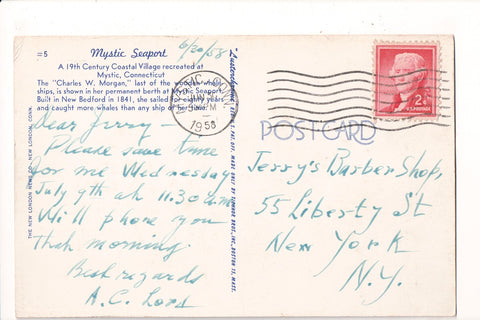 =5
Mystic Seaport
6/30/58
A 19th Century Coastal Village recreated at
Mystic, Connecticut
The "Charles W. Morgan," last of the wooden whale
ships, is shown in her permanent berth at Mystic Seaport.
Built in New Bedford in 1841, she sailed for eighty years
and caught more whales than any ship of her time.
MYSTIC CONN.
1958
2¢
U.S. POSTAGE
POST CARD
Dear Jerry —
Please save time
for me Wednesday
July 9th at 11.30 A.M.
Will phone you
that morning.
Best regards
A.C. Lord
Jerry's Barber Shop,
55 Liberty St
New York
N.Y.
THE NEW LONDON NEWS CO., NEW LONDON, CONN.
MADE ONLY BY TICHNOR BROS., INC., BOSTON 15, MASS.